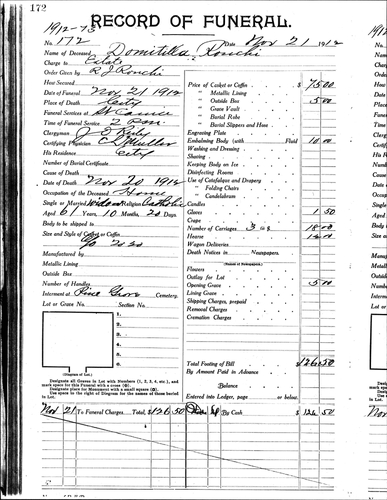 172
RECORD OF FUNERAL.
1912-73
No. 172 Date Nov 21 1912
Name of Deceased Domitilla Ronchi
Charge to Estate
Order Given by R J Ronchi
How Secured
Date of Funeral Nov 21 1912
Place of Death City
Funeral Services at
Time of Funeral Service
Clergyman
Certifying Physician
His Residence City
Number of Burial Certificate
Cause of Death
Date of Death Nov 20 1912
Occupation of the Deceased Home
Single or Married Widow Religion Catholic
Aged 61 Years, 10 Months, 20 Days.
Body to be shipped to
Size and Style of Casket or Coffin
Manufactured by
Metallic Lining
Outside Box
Number of Handles
Interment at Pine Grove Cemetery.
Lot or Grave No. Section No.
1.
2.
3.
4.
5.
6.
(Diagram of Lot.)
Designate all Graves in Lot with Numbers (1, 2, 3, 4, etc.), and
mark space for this Funeral with a cross
Designate place for Monument with a small square
Use space to the right of Diagram for the names of those buried
in Lot.
Price of Casket or Coffin $ 75 00
" Metallic Lining
" Outside Box 5 00
" Grave Vault
" Burial Robe
" Burial Slippers and Hose
Engraving Plate
Embalming Body (with Fluid 10 00
Washing and Dressing
Shaving
Keeping Body on Ice
Disinfecting Rooms
Use of Catafalque and Drapery
" Folding Chairs
" Candelabrum
Candles
Gloves 1 50
Crape
Number of Carriages 3 18 00
Hearse 12 00
Wagon Deliveries
Death Notices in Newspapers.
(Names of Newspapers.)
Flowers
Outlay for Lot
Opening Grave 5 00
Lining Grave
Shipping Charges, prepaid
Removal Charges
Cremation Charges
Total Footing of Bill $126.50
By Amount Paid in Advance
Balance
Entered into Ledger, page or below.
Nov 21 To Funeral Charges Total $126 50 By Cash $ 126 50